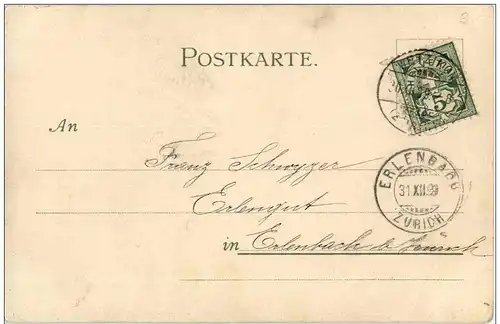 POSTKARTE.
5
An
Franz Schwyzer
Erlengut
in Erlenbach b. Zürich
ERLENBACH
31.XII.99
ZÜRICH